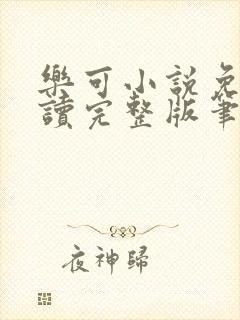 樂可小說免
讀完整版筆
夜神歸